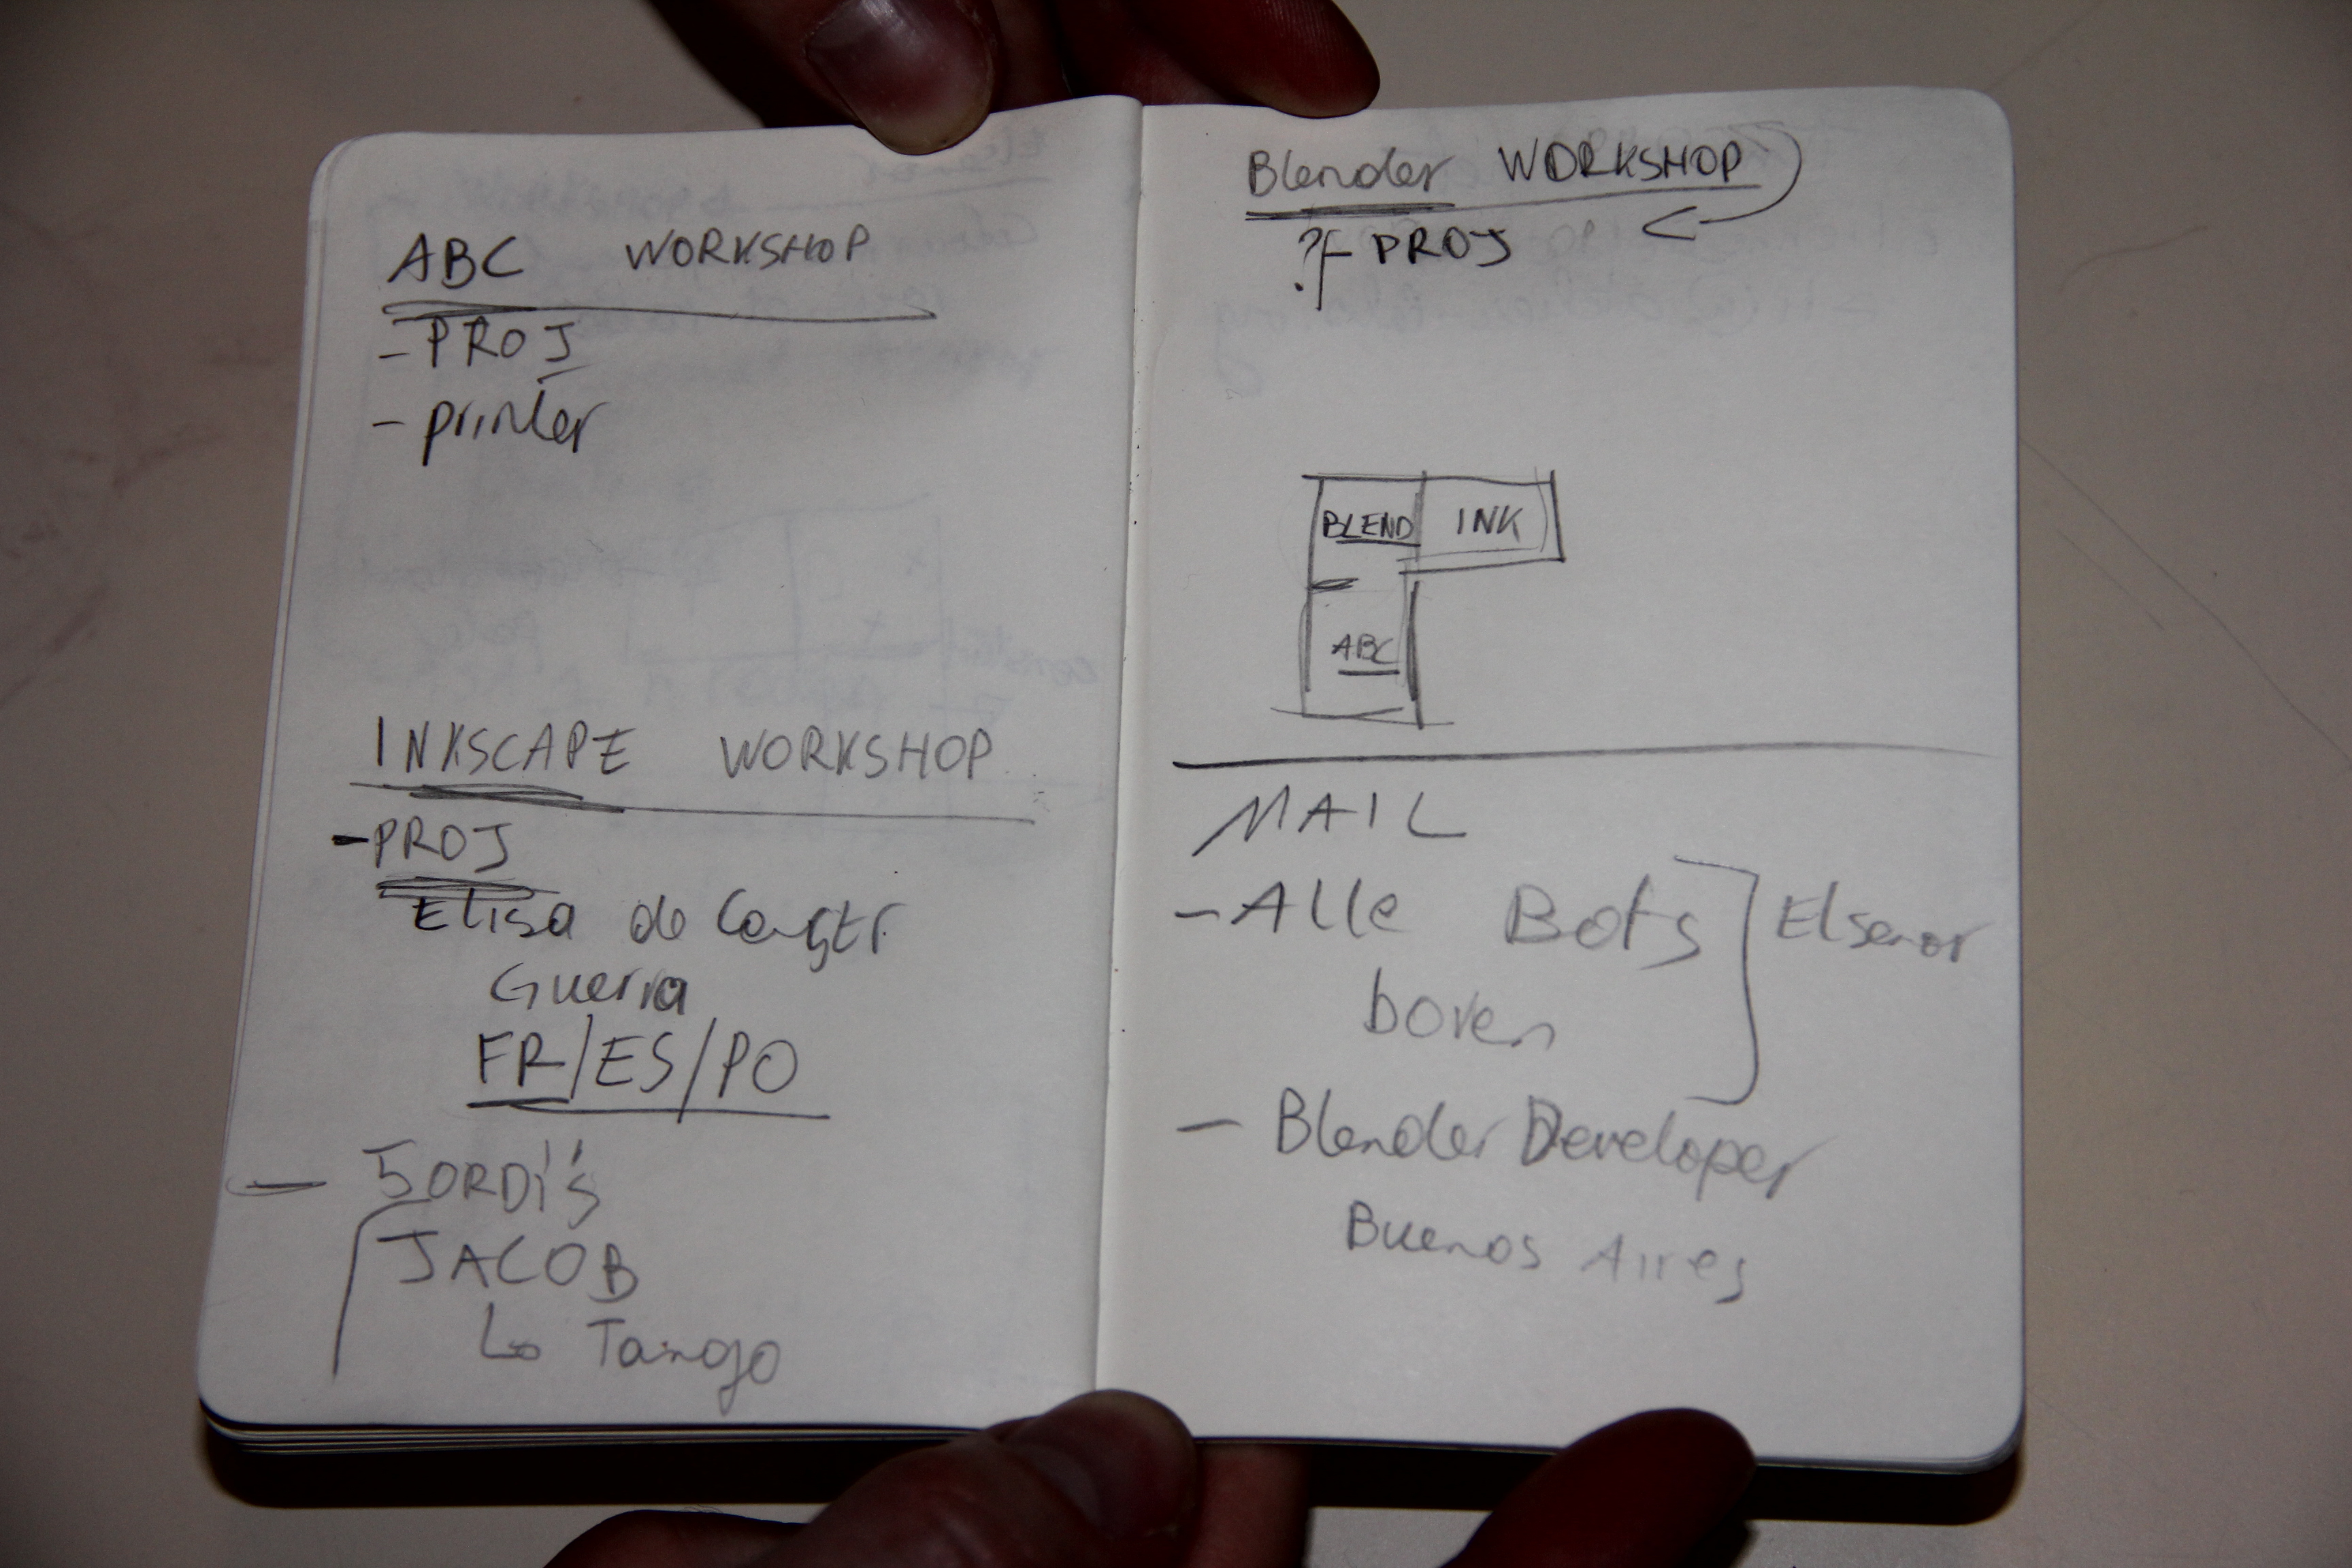 ABC WORKSHOP
- PROJ
- printer
INKSCAPE WORKSHOP
- PROJ
Elisa de
Guerra
FR/ES/PO
- 5 ORDi's
JACOB
Lo Tango
Blender WORKSHOP
? PROJ
BLEND INK
ABC
MAIL
- Alle Bots
boven
Elsenor
- Blender Developer
Buenos Aires